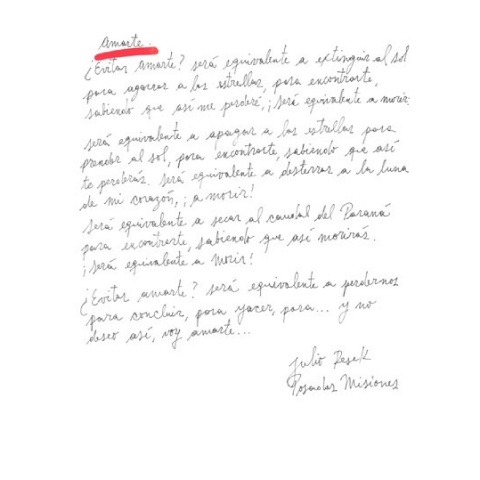 Amarte.
¿Evitar amarte? será equivalente a extinguir al sol
para agarrar a las estrellas, para encontrarte,
sabiendo que así me perderé, ¡será equivalente a morir.
será equivalente a apagar a las estrellas para
prender al sol, para encontrarte, sabiendo que así
te perderás. será equivalente a desterrar a la luna
de mi corazón, ¡a morir!
será equivalente a secar al caudal del Paraná
para encontrarte, sabiendo que así morirás.
¡será equivalente a morir!
¿Evitar amarte? será equivalente a perdernos
para concluir, para yacer, para... y no
deseo así, voy amarte...
Julio Resek
Posadas Misiones